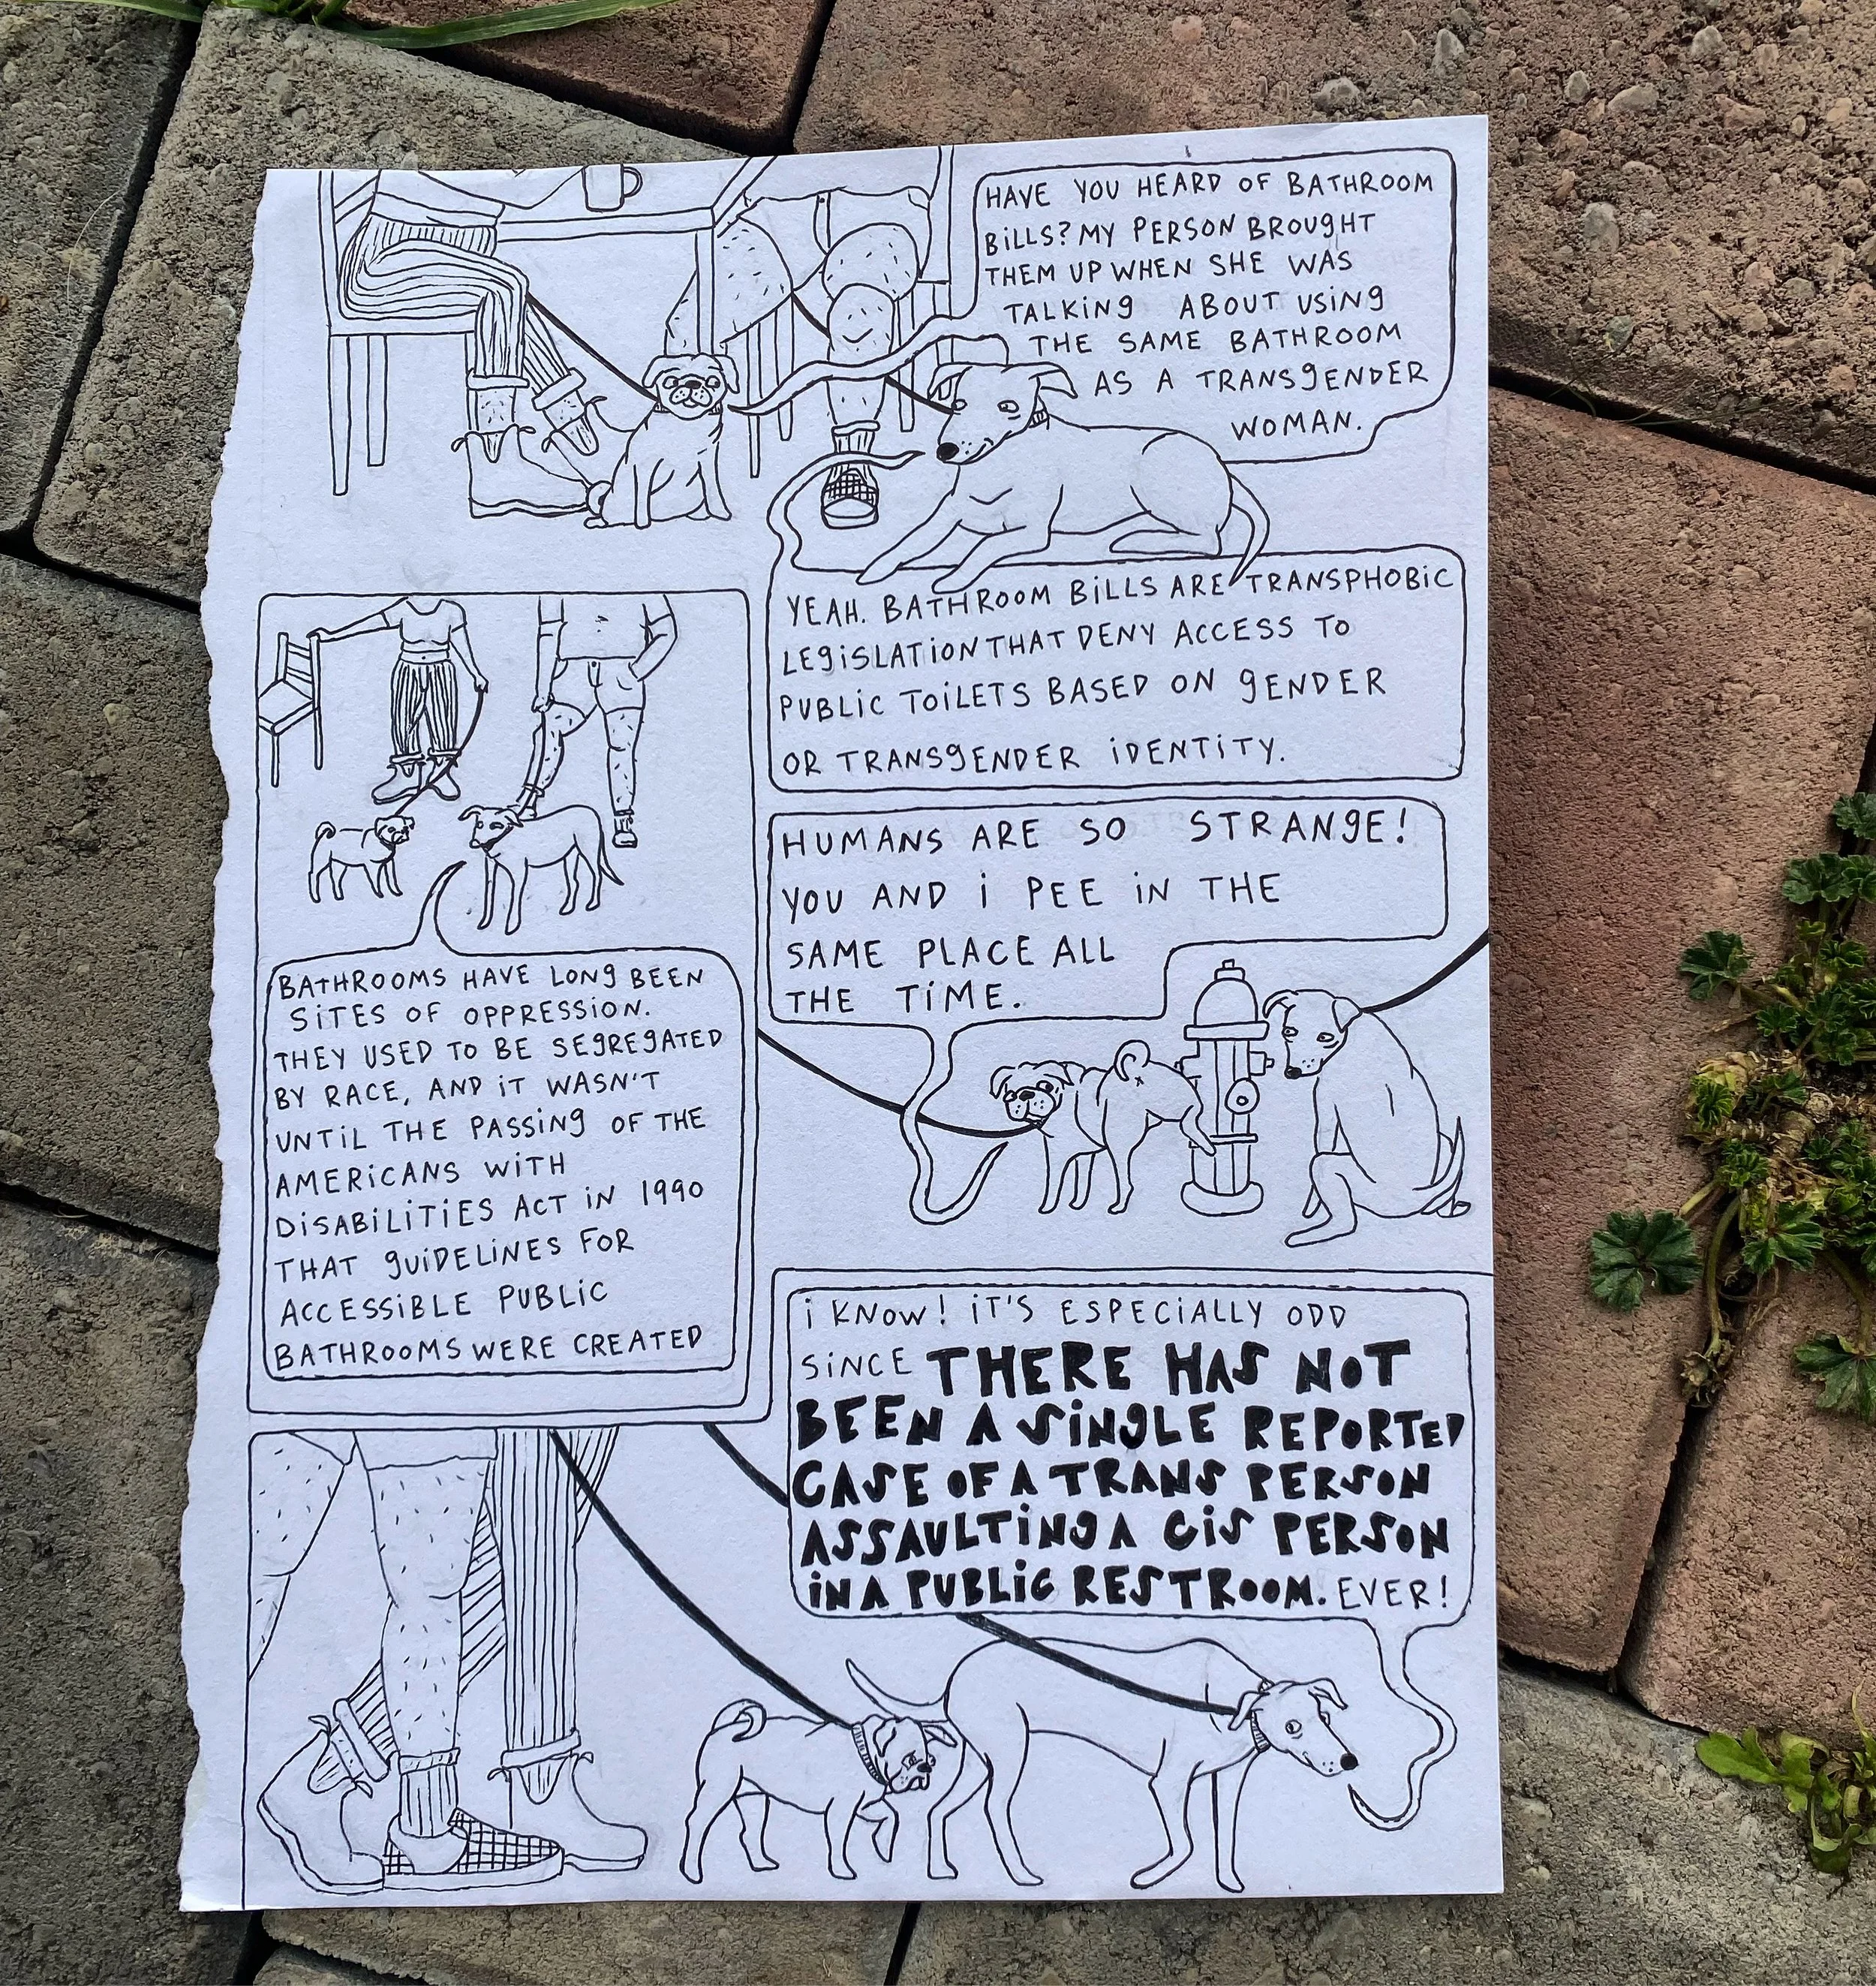 HAVE YOU HEARD OF BATHROOM
BILLS? MY PERSON BROUGHT
THEM UP WHEN SHE WAS
TALKING ABOUT USING
THE SAME BATHROOM
AS A TRANSGENDER
WOMAN.
YEAH. BATHROOM BILLS ARE TRANSPHOBIC
LEGISLATION THAT DENY ACCESS TO
PUBLIC TOILETS BASED ON GENDER
OR TRANSGENDER IDENTITY.
BATHROOMS HAVE LONG BEEN
SITES OF OPPRESSION.
THEY USED TO BE SEGREGATED
BY RACE, AND IT WASN'T
UNTIL THE PASSING OF THE
AMERICANS WITH
DISABILITIES ACT IN 1990
THAT GUIDELINES FOR
ACCESSIBLE PUBLIC
BATHROOMS WERE CREATED
HUMANS ARE SO STRANGE!
YOU AND I PEE IN THE
SAME PLACE ALL
THE TIME.
I KNOW! IT'S ESPECIALLY ODD
SINCE THERE HAS NOT
BEEN A SINGLE REPORTED
CASE OF A TRANS PERSON
ASSAULTING A CIS PERSON
IN A PUBLIC RESTROOM. EVER!